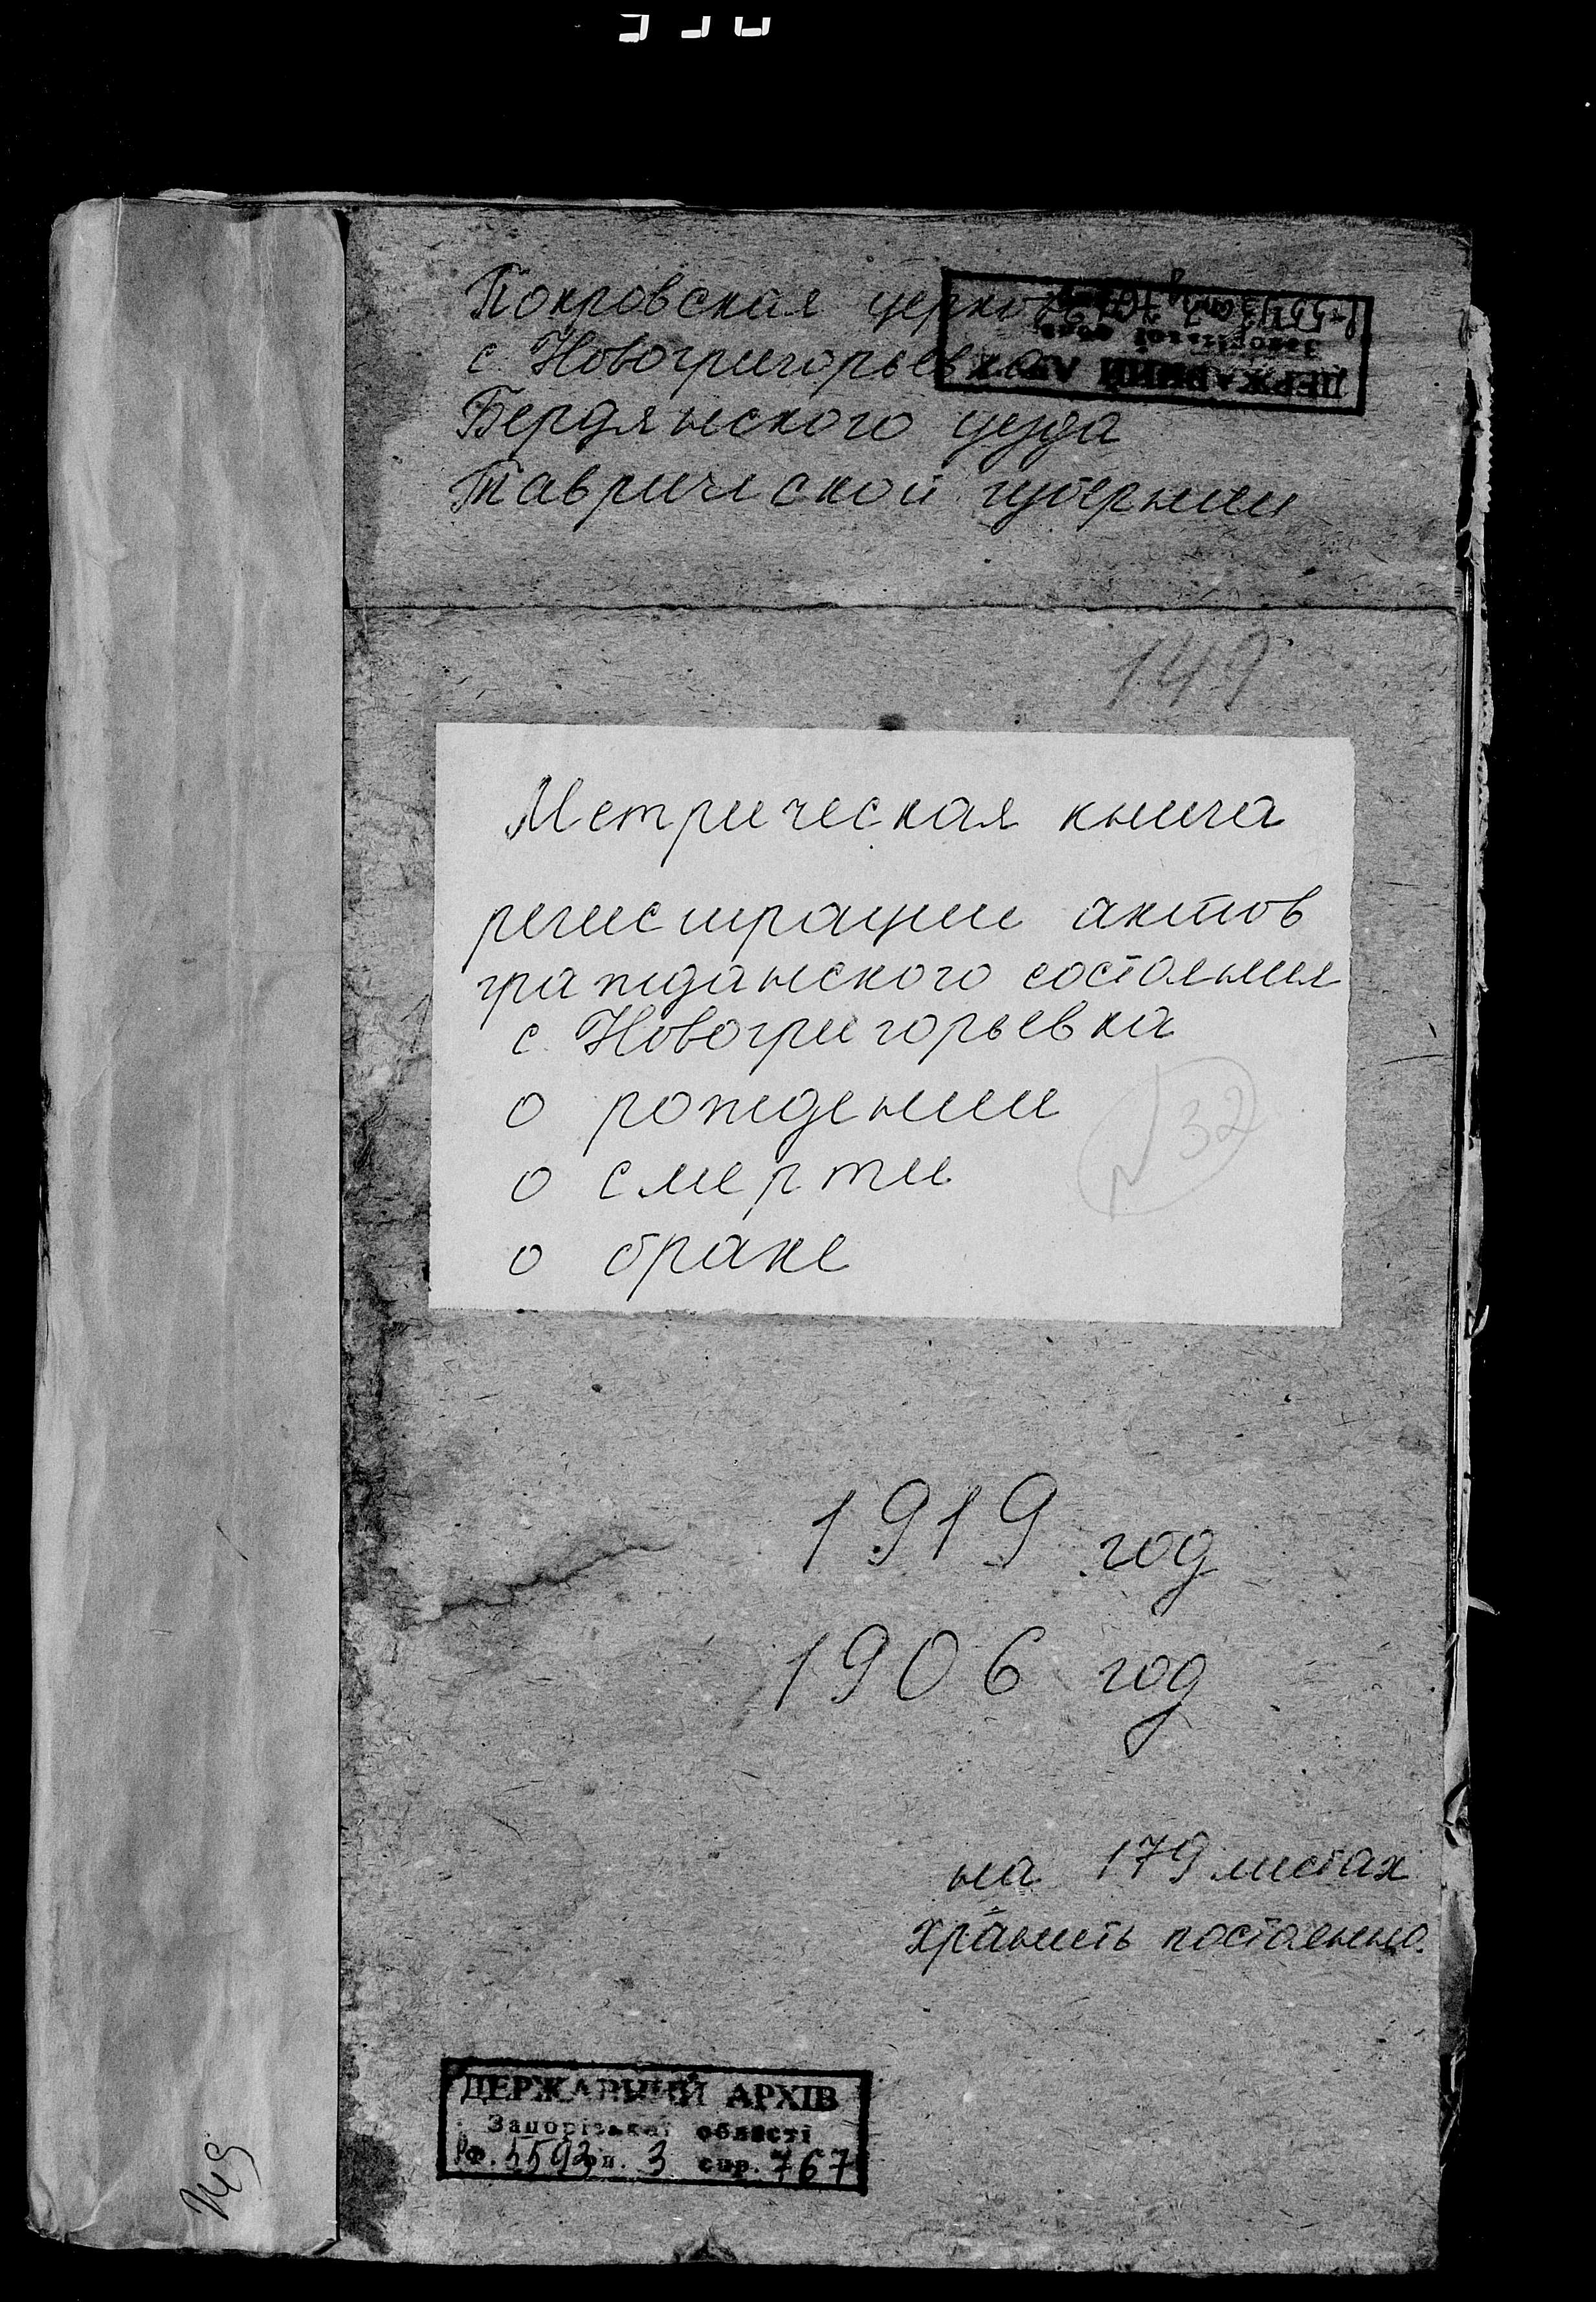 Покровская церковь
с. Новогригорьевка
Бердянского уезда
Таврической губернии
149
Метрическая книга
регистрации актов
гражданского состояния
с. Новогригорьевка
о рождении
№ 32
о смерти
о браке
1919 год
1906 год
на 179 листах
хранить постоянно.
ДЕРЖАВНИЙ АРХІВ
Запорізької області
Ф. Р5593 оп. 3 спр. 767